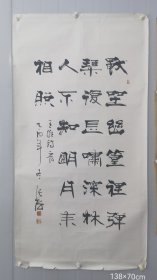 獨坐幽篁裡彈
琴復長嘯深林
人不知明月来
相照
138×70cm